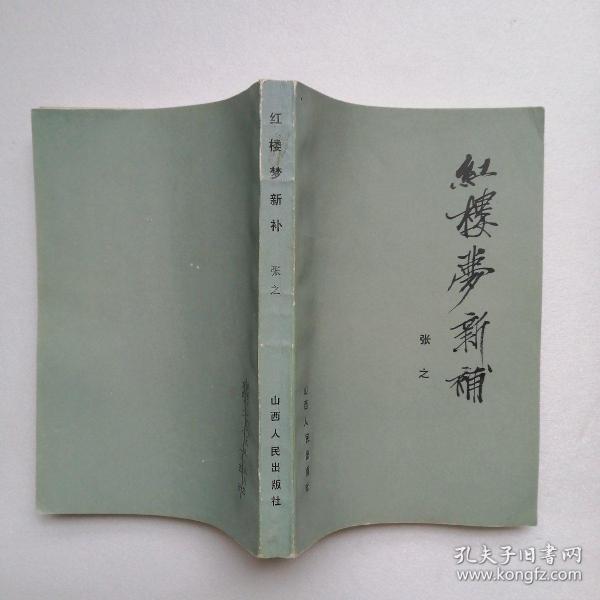 紅樓夢新補
张之
山西人民出版社
红楼梦新补
张之
山西人民出版社
孔夫子旧书网
www.kongfz.com